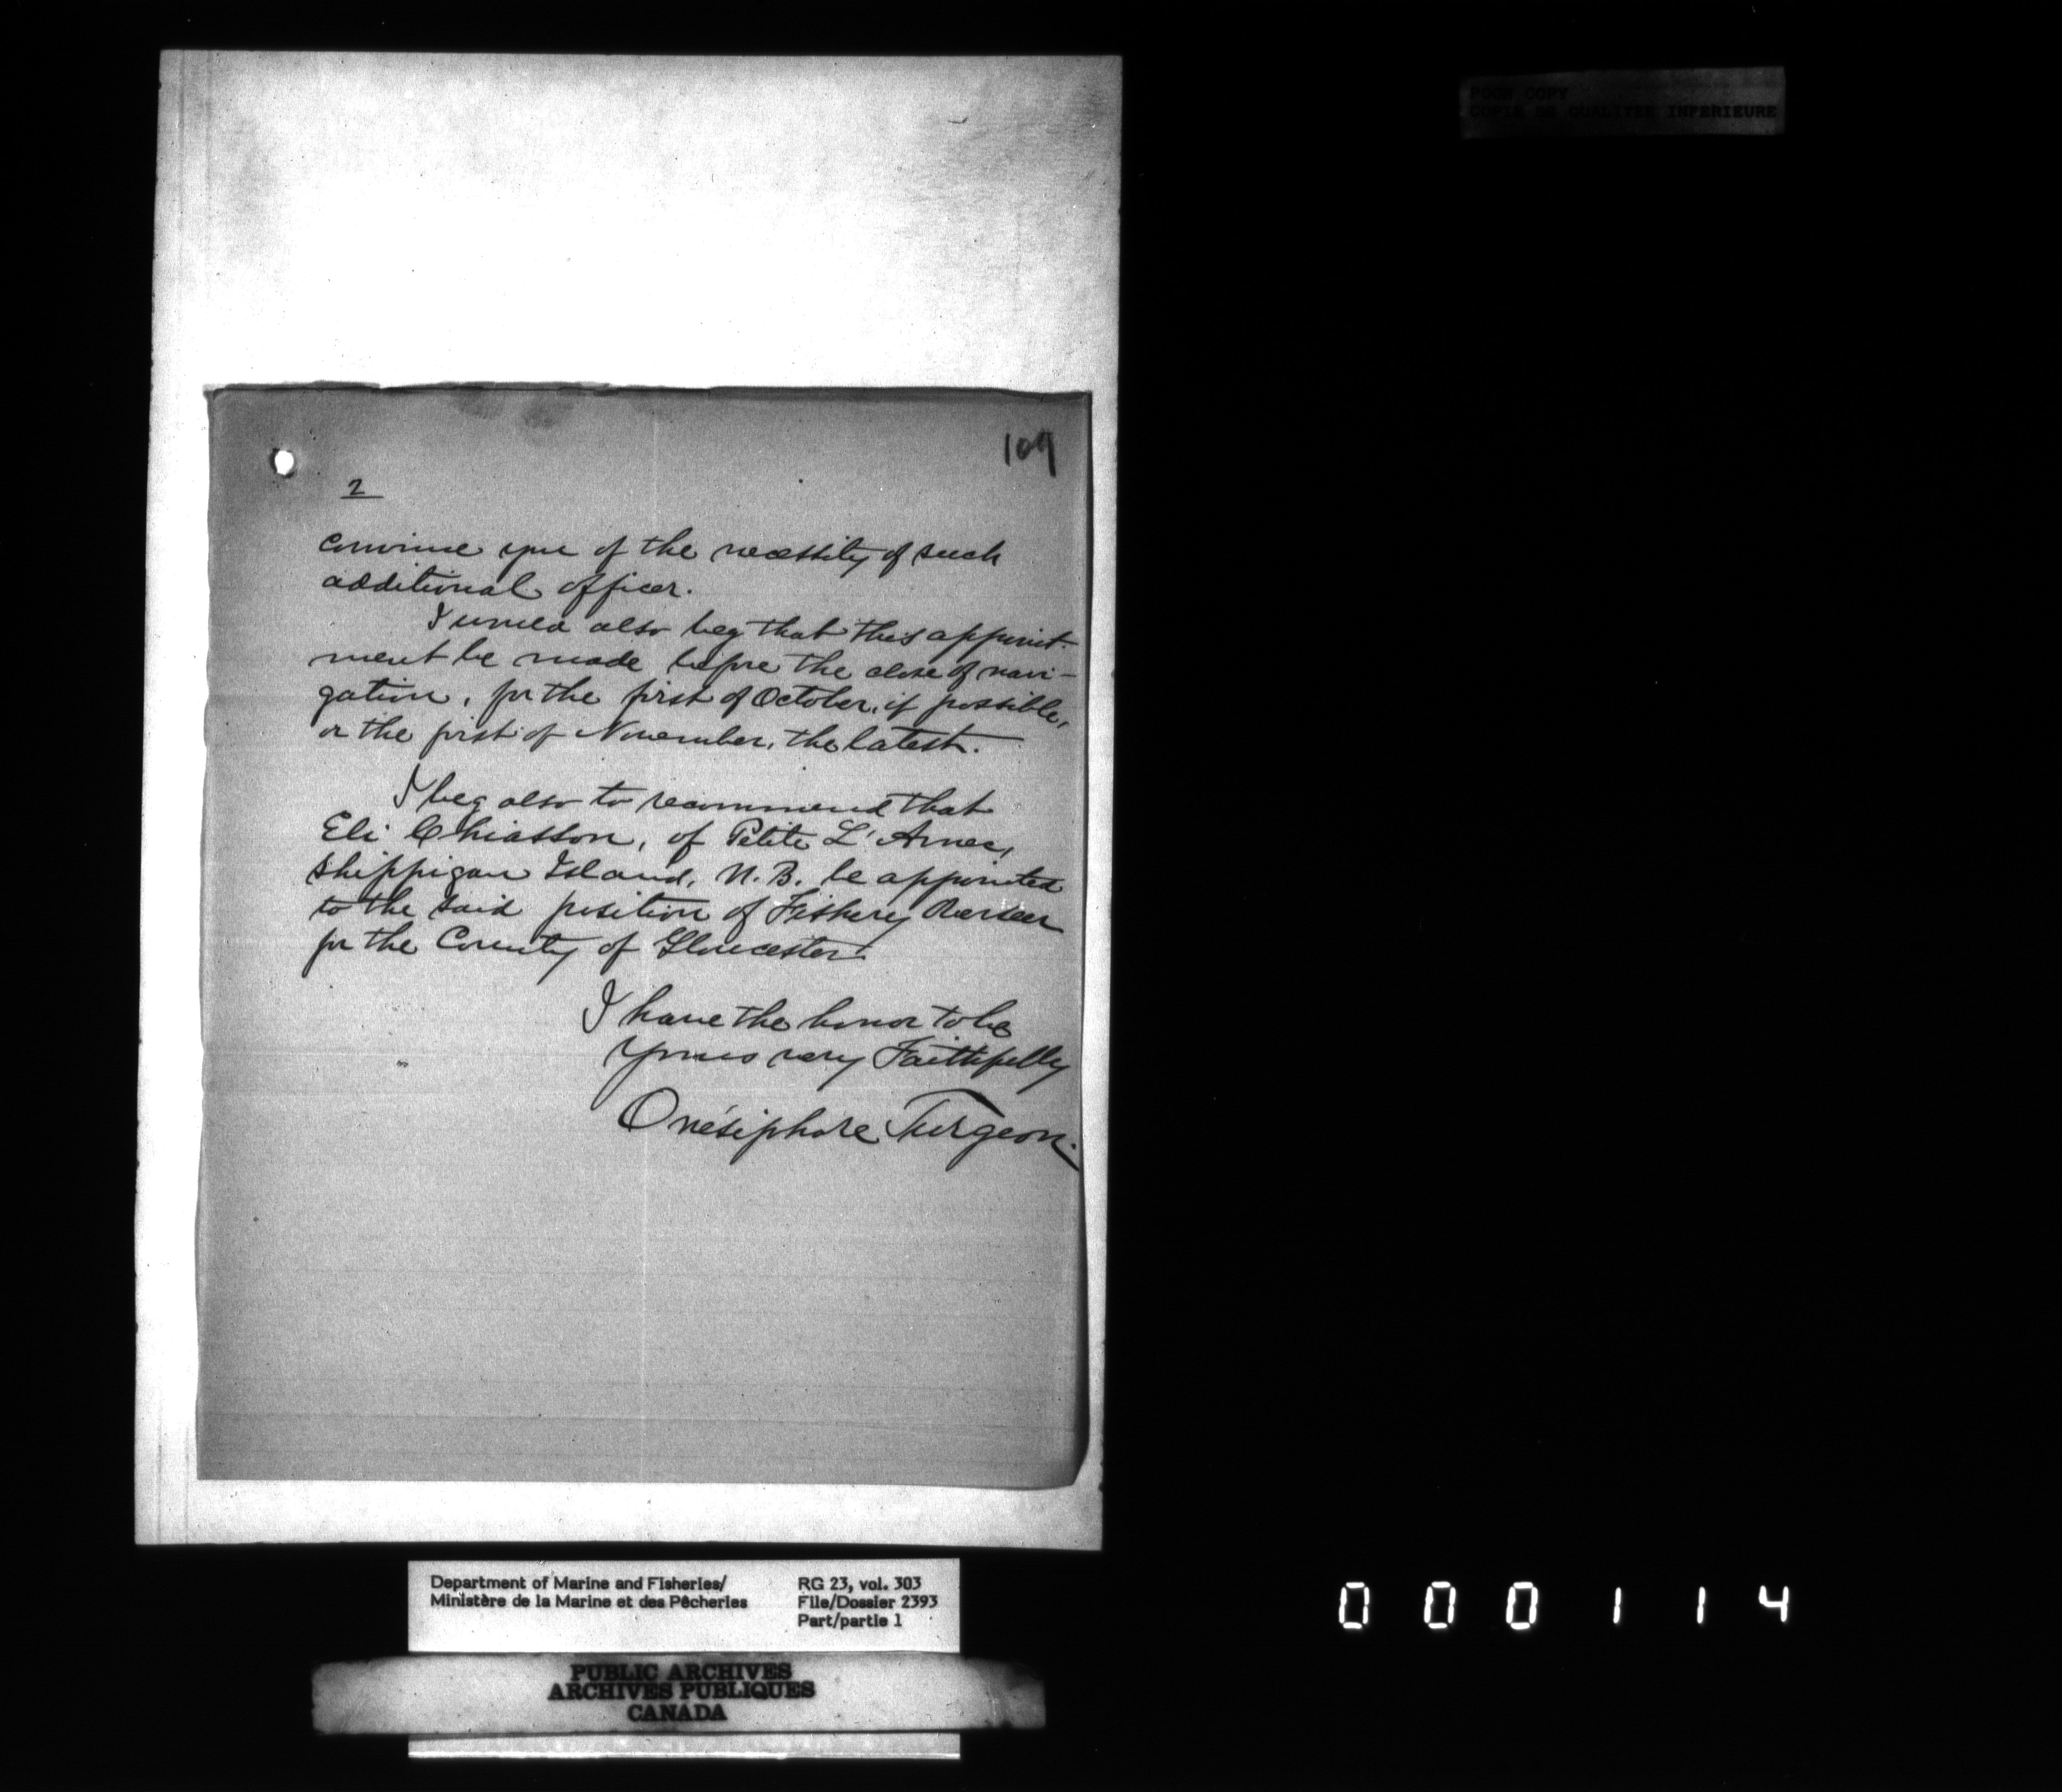 POOR COPY
COPIE DE QUALITEE INFERIEURE
109
2
convince you of the necessity of such
additional officer.
I would also beg that this appoint-
ment be made before the close of navi-
gation, for the first of October, if possible,
or the first of November, the latest.
I beg also to recommend that
Eli Chiasson, of Petite L'Amec,
Shippigan Island, N.B. be appointed
to the said position of Fishery Overseer
for the County of Gloucester.
I have the honor to be
Yours very Faithfully
Onésiphore Turgeon.
Department of Marine and Fisheries/
Ministère de la Marine et des Pêcheries
RG 23, vol. 303
File/Dossier 2393
Part/partie 1
PUBLIC ARCHIVES
ARCHIVES PUBLIQUES
CANADA
000114